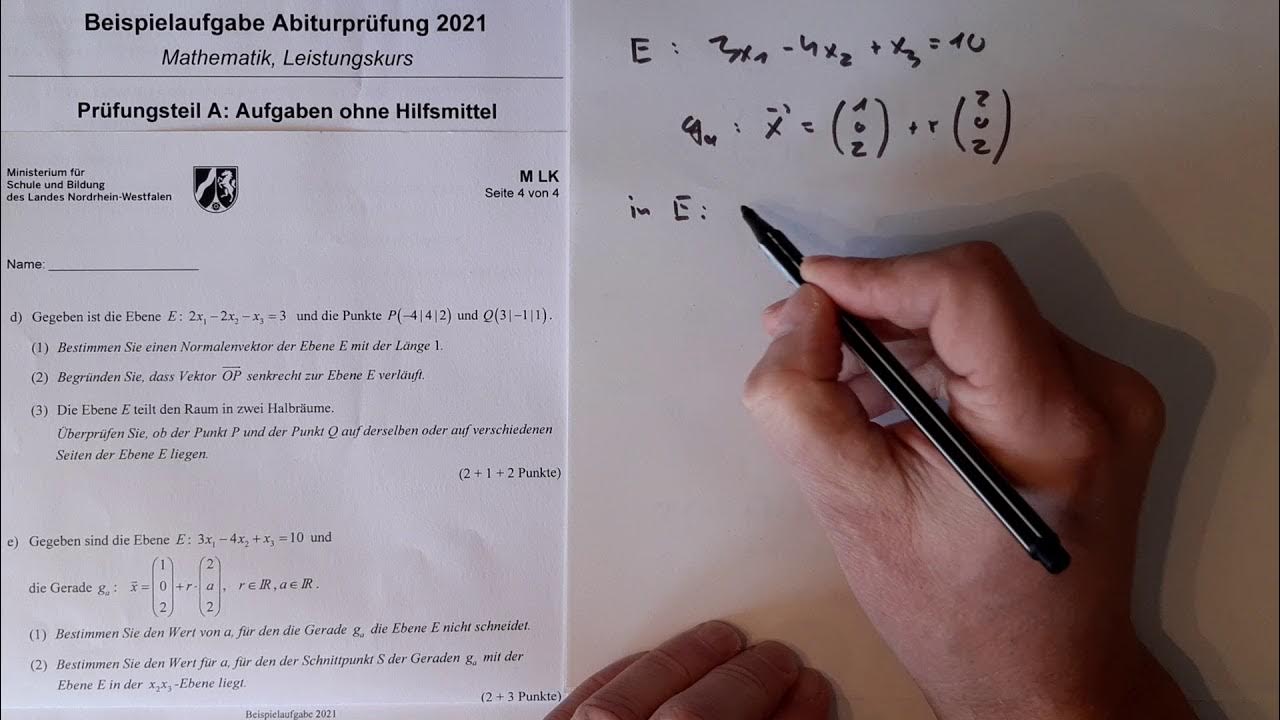 Beispielaufgabe Abiturprüfung 2021
Mathematik, Leistungskurs
Prüfungsteil A: Aufgaben ohne Hilfsmittel
Ministerium für
Schule und Bildung
des Landes Nordrhein-Westfalen
M LK
Seite 4 von 4
Name:
d) Gegeben ist die Ebene E: 2x₁ − 2x₂ − x₃ = 3 und die Punkte P(−4|4|2) und Q(3|−1|1).
(1) Bestimmen Sie einen Normalenvektor der Ebene E mit der Länge 1.
(2) Begründen Sie, dass Vektor OP senkrecht zur Ebene E verläuft.
(3) Die Ebene E teilt den Raum in zwei Halbräume.
Überprüfen Sie, ob der Punkt P und der Punkt Q auf derselben oder auf verschiedenen
Seiten der Ebene E liegen.
(2 + 1 + 2 Punkte)
e) Gegeben sind die Ebene E: 3x₁ − 4x₂ + x₃ = 10 und
die Gerade gₐ: x⃗ = (1 0 2) + r · (2 a 2), r ∈ ℝ, a ∈ ℝ.
(1) Bestimmen Sie den Wert von a, für den die Gerade gₐ die Ebene E nicht schneidet.
(2) Bestimmen Sie den Wert für a, für den der Schnittpunkt S der Geraden gₐ mit der
Ebene E in der x₂x₃-Ebene liegt.
(2 + 3 Punkte)
Beispielaufgabe 2021
E: 3x₁ − 4x₂ + x₃ = 10
gₐ: x⃗ = (1 0 2) + r (2 a 2)
in E: